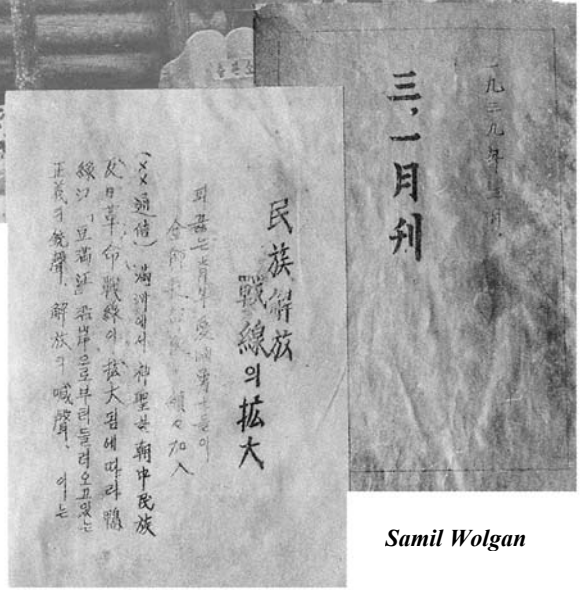 一九三九年 月.
三,一月刊
民族解放
戰線의拡大
피끓는青年愛國勇士들이
續々加入
(××通信) 滿洲에서神聖한朝中民族
反日革命戰線이拡大됨에따라鴨
綠江,豆滿江 沿岸으로부터들려오고있는
正義의銃聲、解放의喊聲、이는
Samil Wolgan